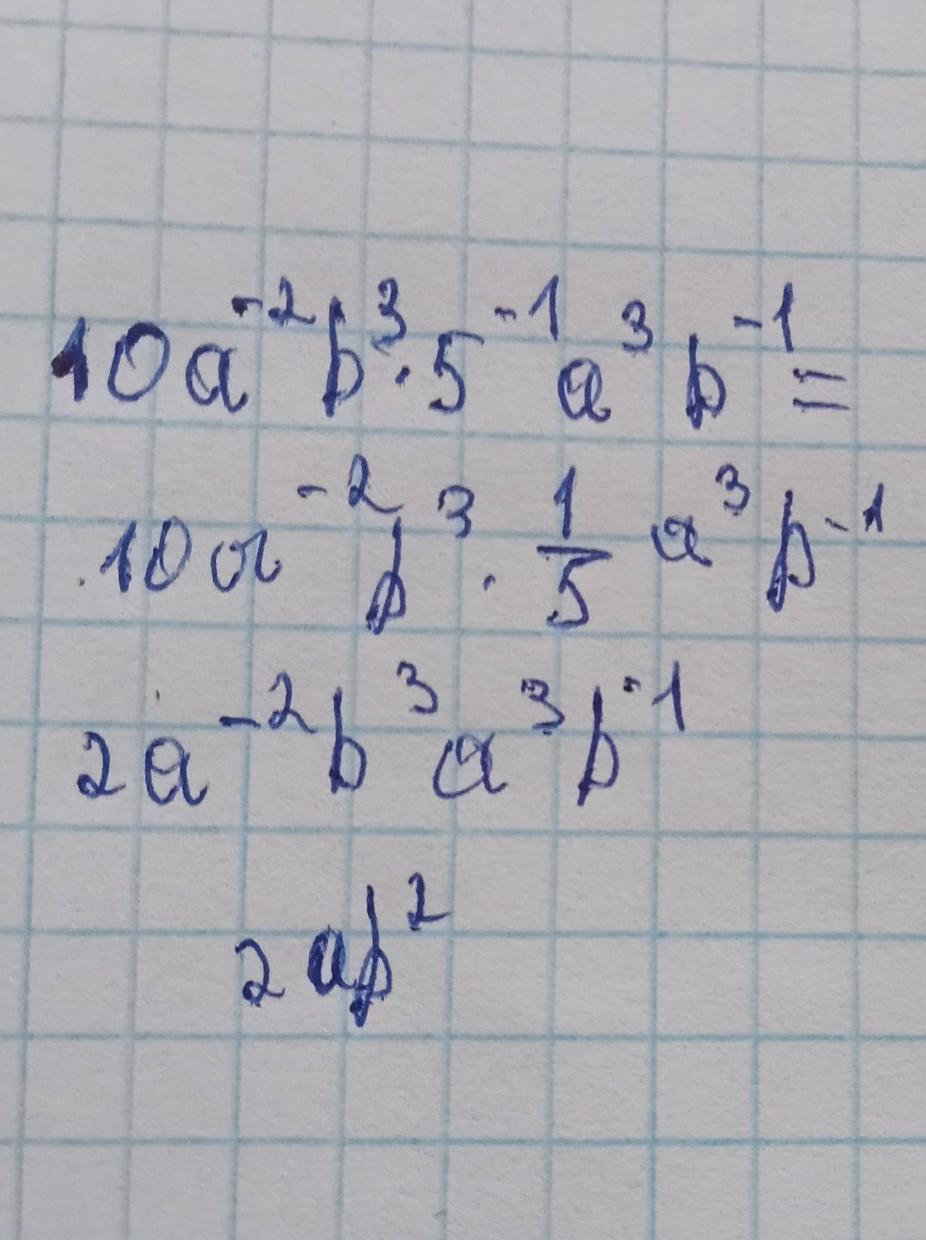 10a⁻²b³·5⁻¹a³b⁻¹=
10a⁻²b³·1/5 a³b⁻¹
2a⁻²b³a³b⁻¹
2ab²